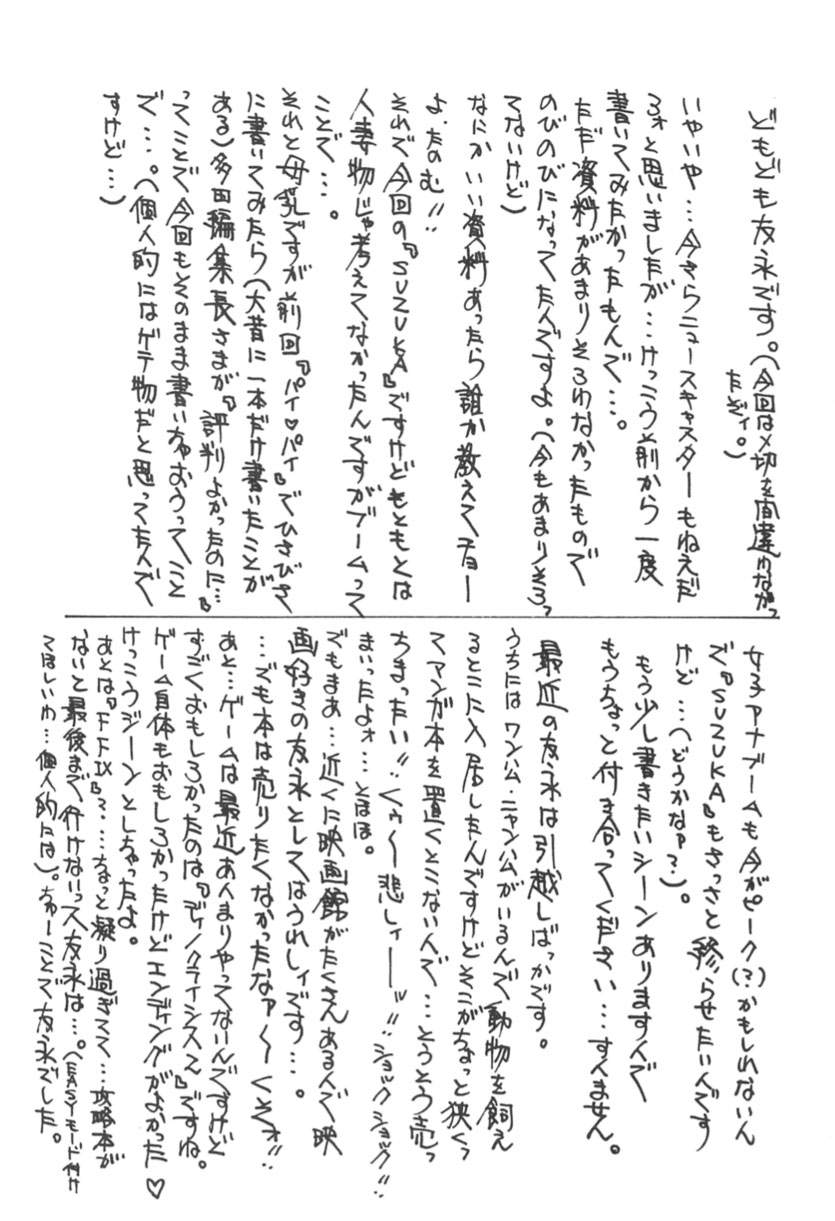 どもども友永です。(今回は〆切を間違わなかっ
たぞィ。)
いやいや…今さらニュースキャスターもねえだ
ろォと思いましたが…けっこう前から一度
書いてみたかったもんで…。
ただ資料があまりそろわなかったもので
のびのびになってたんですよ。(今もあまりそろっ
てないけど)
なにかいい資料あったら誰か教えてチョー
よ。たのむ!!
それで今回の『SUZUKA』ですけどもともとは
人妻物じゃ考えてなかったんですがブームって
ことで…。
それと母乳ですが前回『パイ♡パイ』でひさびさ
に書いてみたら(大昔に一本だけ書いたことが
ある)多田編集長さまが『評判よかったのに…』
ってことで今回もそのまま書いちゃおうってこと
で…。(個人的にはゲテ物だと思ってたんで
すけど…)
女子アナブームも今がピーク(?)かもしれないん
で『SUZUKA』もさっさと終らせたいんです
けど…(どうかなァ?)。
もう少し書きたいシーンありますんで
もうちょっと付き合ってください…すんません。
最近の友永は引越しばっかです。
うちにはワンハム・ニャンハムがいるんで動物を飼え
るとこに入居したんですけどそこがちょっと狭くっ
てマンガ本を置くとこないんで…そうそう売っ
ちまったい!!くぅ〜悲しィーッ!!ショックショック!!
まいったよォ…とほほ。
でもまあ…近くに映画館がたくさんあるんで映
画好きの友永としてはうれしィです…。
…でも本は売りたくなかったなァ〜くそォ!!
あと…ゲームは最近あんまりやってないんですけど
すごくおもしろかったのは『ディノクライシス2』ですね。
ゲーム自体もおもしろかったけどエンディングがよかった♡
けっこうジーンとしちゃったよ。
あとは『FFⅨ』?…ちょっと凝り過ぎてて…攻略本が
ないと最後まで行けないっス友永は…。(EASYモード付け
てほしいわ…個人的には)。ちゅーことで友永でした。